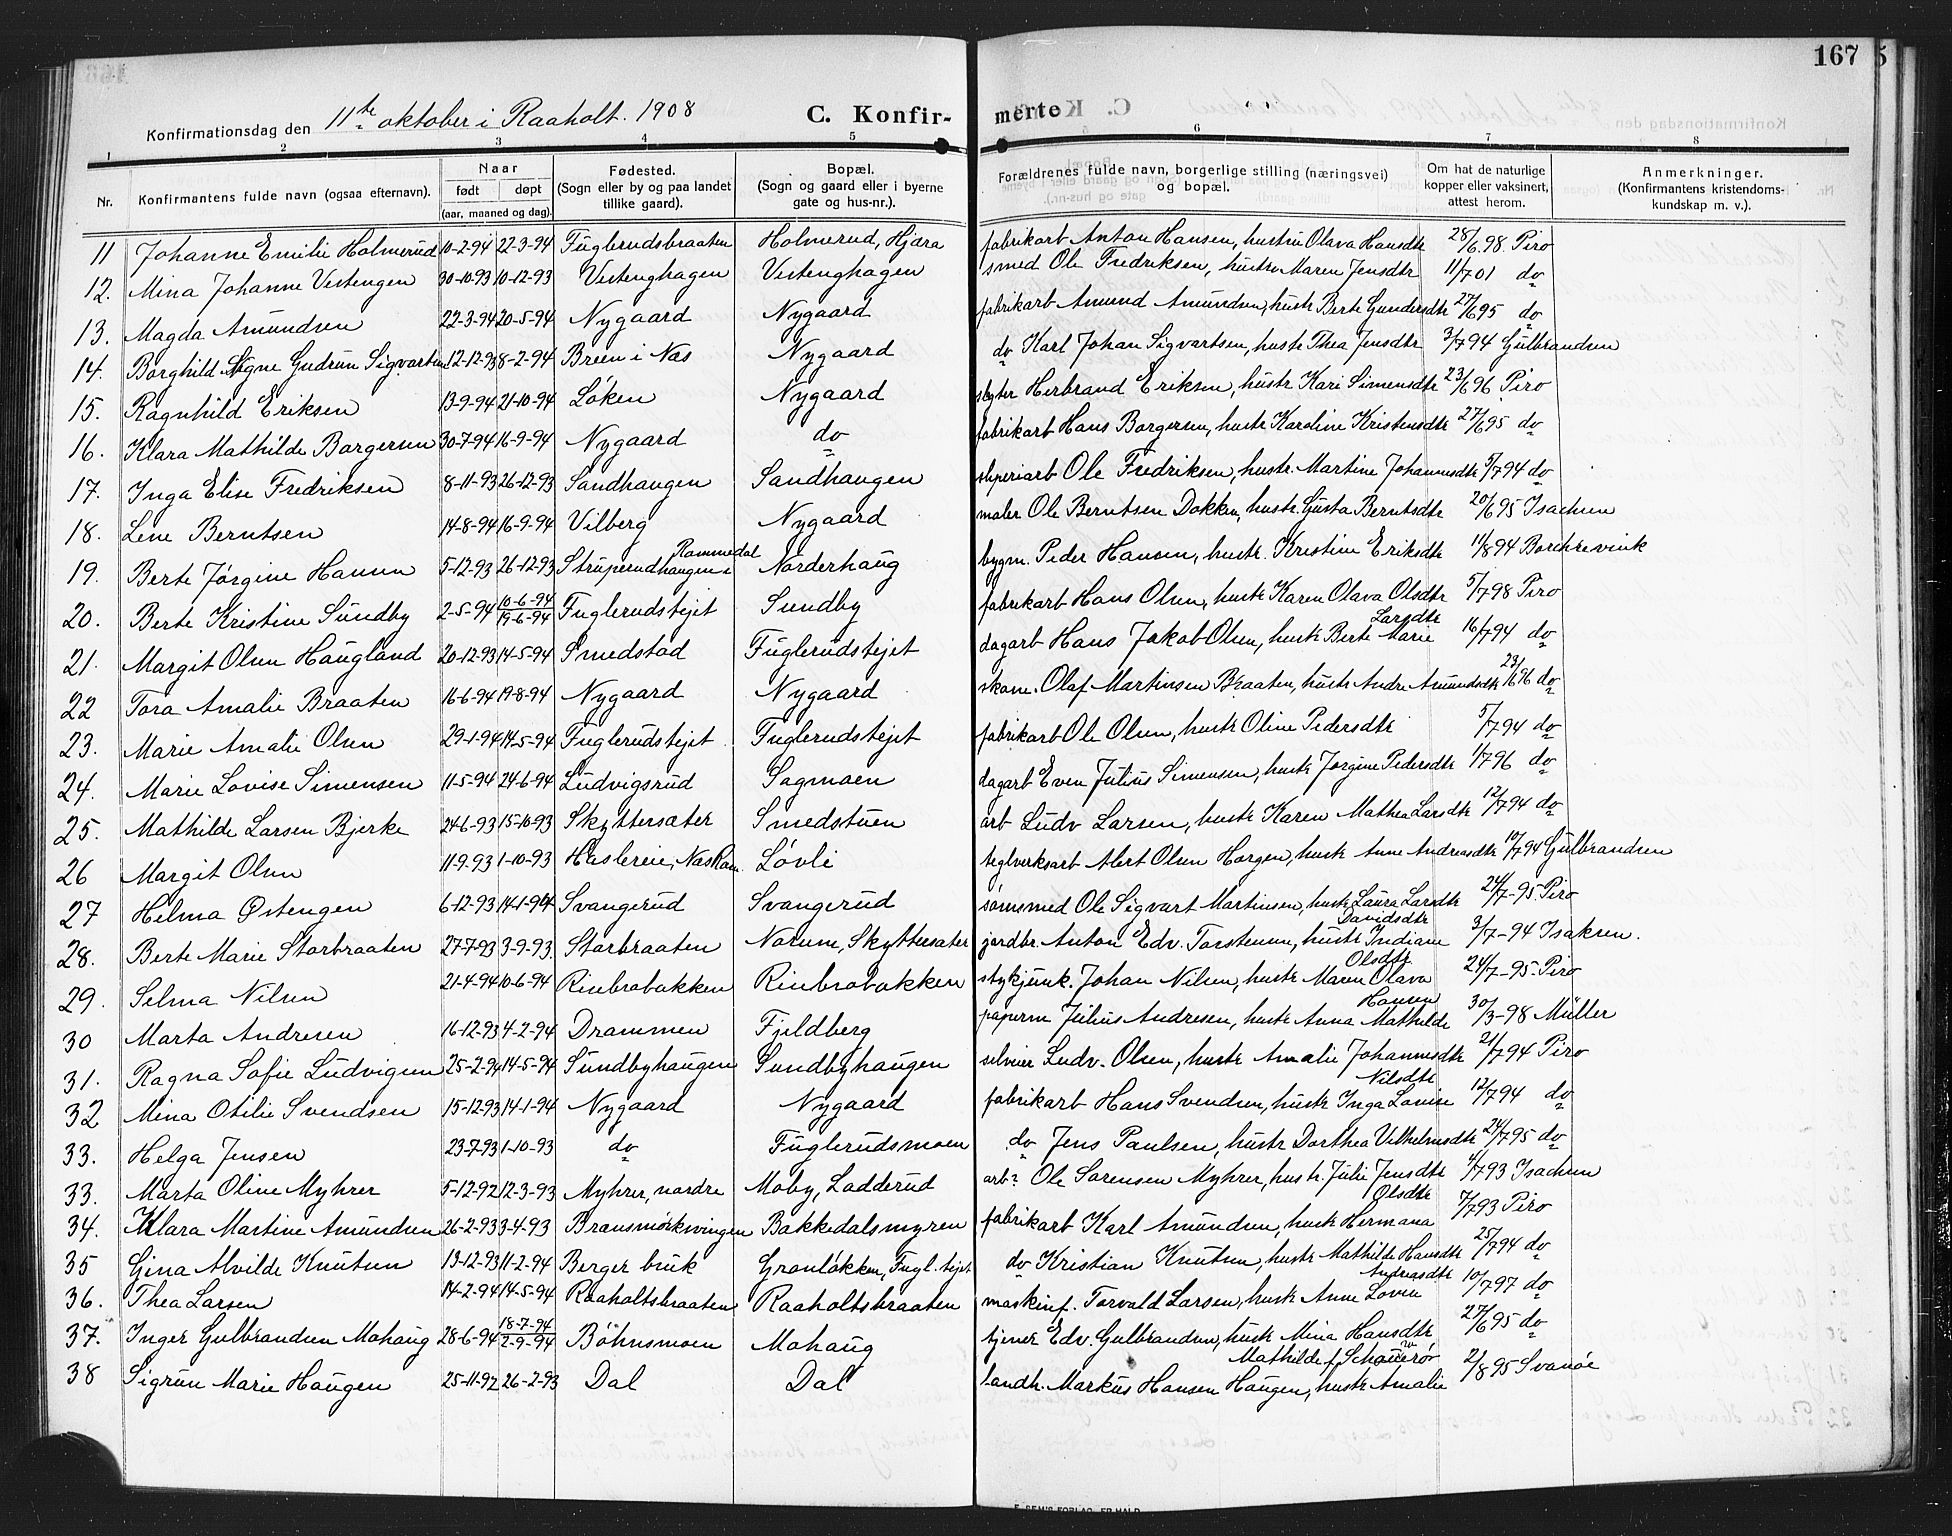 167 5
Konfirmationsdag den 11te oktober i Raaholt. 1908 C. Konfir- merte
1 2 3 4 5 6 7 8
Nr. Konfirmantens fulde navn (ogsaa efternavn). Naar født døpt (aar, maaned og dag). Fødested. (Sogn eller by og paa landet tillike gaard). Bopæl. (Sogn og gaard eller i byerne gate og hus-nr.). Forældrenes fulde navn, borgerlige stilling (næringsvei) og bopæl. Om hat de naturlige kopper eller vaksinert, attest herom. Anmerkninger. (Konfirmantens kristendoms- kundskap m. v.).
11 Johanne Emilie Holmerud 10-2-94 22-3-94 Fuglerudsbraaten Holmerud, Hjæra fabrikarb Anton Hansen, hustru Olava Hansdtr 28/6 98 Piro
12. Mina Johanne Vestengen 30-10-93 10-12-93 Vestenghagen Vestenghagen smed Ole Fredriksen, hustru Maren Jensdtr 11/7 01 do
13. Magda Amundsen 22-3-94 20-5-94 Nygaard Nygaard fabrikarb Amund Amundsen, hustr Berte Gundersdtr 27/6 95 do
14. Borghild Signe Gudrun Sigvartsen 12-12-93 8-2-94 Breen i Nes Nygaard do Karl Johan Sigvartsen, hustr Thea Jensdtr 3/7 94 Gulbrandsen
15. Ragnhild Eriksen 13-9-94 21-10-94 Løken Nygaard Herbrand Eriksen, hustr Kari Simensdtr 23/6 96 Piro
16. Klara Mathilde Borgersen 30-7-94 16-9-94 Nygaard do fabrikarb Hans Borgersen, hustr Karoline Kristensdtr 27/6 95 do
17. Inga Elise Fredriksen 8-11-93 26-12-93 Sandhaugen Sandhaugen sliperiarb Ole Fredriksen, hustr. Martine Johannesdtr 5/7 94 do
18. Lene Berntsen 14-8-94 16-9-94 Vilberg Nygaard maler Ole Berntsen Dokken, hustr. Gusta Berntsdtr 20/6 95 Isachsen
19. Berte Jørgine Hansen 5-12-93 26-12-93 Struperudhaugen i Rommedal Norderhaug bygm. Peder Hansen, hustr. Kristine Eriksdtr 11/8 94 Borchrevink
20. Berte Kristine Sundby 2-5-94 10-6-94 19-6-94 Fuglerudstejet Sundby fabrikarb Hans Olsen, hustr Karen Olava Olsdtr 5/7 98 Piro
21. Margit Olsen Haugland 20-12-93 14-5-94 Smedstad Fuglerudstejet dagarb Hans Jakob Olsen, hustr Berte Marie Larsdtr 16/7 94 do
22 Tora Amalie Braaten 16-6-94 19-8-94 Nygaard Nygaard skom. Olaf Martinsen Braaten, hustr Andre Amundsdtr 23/6 96 do
23. Marie Amalie Olsen 29-1-94 14-5-94 Fuglerudstejet Fuglerudstejet fabrikarb Ole Olsen, hustr Oline Pedersdtr 5/7 94 do
24. Marie Lovise Simensen 11-5-94 24-6-94 Ludvigsrud Sagmoen dagarb Even Julius Simensen, hustr Jørgine Pedersdtr 1/7 96 do
25. Mathilde Larsen Bjerke 24-6-93 15-10-93 Skyttersæter Smedstuen arb Ludv Larsen, hustr Karen Mathea Larsdtr 12/7 94 do
26 Margit Olsen 11-9-93 1-10-93 Haslereie, Nes Rom. Løvli teglverksarb Alert Olsen Horgen, hustr Anne Andreasdtr 10/7 94 Gulbrandsen
27 Helma Østengen 6-12-93 14-1-94 Svangerud Svangerud sømsmed Ole Sigvart Martinsen, hustr Laura Larsdtr 24/7-95 Piro
28. Berte Marie Storbraaten 27-7-93 3-9-93 Storbraaten Norum, Skyttersæter jordbr. Anton Edv. Torstensen, hustr Indiane Davidsdtr 3/7-94 Isaksen.
29. Selma Nilsen 21-4-94 10-6-94 Risebrobakken Risebrobakken stykjunk. Johan Nilsen, hustr Maren Olava Olsdtr 24/7-95 Piro
30 Marta Andresen 16-12-93 4-2-94 Drammen Fjeldberg paperm Julius Andresen, hustr Anna Mathilde Hansen 30/3-98 Müller
31. Ragna Sofie Ludvigsen 25-2-94 14-5-94 Sundbyhaugen Sundbyhaugen selveier Ludv. Olsen, hustr Amalie Johannesdtr 21/7 94 Piro
32 Mina Otilie Svendsen 15-12-93 14-1-94 Nygaard Nygaard fabrikarb Hans Svendsen, hustr Inga Lovise Nilsdtr 12/7 94 do
33. Helga Jensen 23-7-93 1-10-93 do Fuglerudsmoen do Jens Paulsen, hustr Dorthea Vilhelmsdtr 24/7 95 do
33. Marta Oline Myhrer 5-12-92 12-3-93 Myhrer, nordre Moby, Ladderud arb? Ole Sørensen Myhrer, hustr. Julie Jensdtr 4/7 93 Isachsen
34. Klara Martine Amundsen 26-2-93 3-4-93 Bransmorkvingen Bakkedalsmyren fabrikarb Karl Amundsen, hustr Hermana Olsdtr 7/7 93 Piro
35 Gina Alvilde Knutsen 13-12-93 11-2-94 Berger bruk Granløkken, Fugl. tejet do Kristian Knutsen, hustr Mathilde Hansdtr 25/7 94 do
36. Thea Larsen 14-2-94 14-5-94 Raaholtsbraaten Raaholtsbraaten maskinf. Torvald Larsen, hustr Anne Lovise Andreasdtr 10/7 97 do
37. Inger Gulbrandsen Mohaug 28-6-94 18-7-94 2-9-94 Böhnsmoen Mohaug tjener Edv. Gulbrandsen, hustr Mina Hansdtr 27/6 95 do
38 Sigrun Marie Haugen 25-11-92 26-2-93 Dal Dal landh. Markus Hansen Haugen, hustr Amalie Mathilde f. 2/8 95 Svanøe